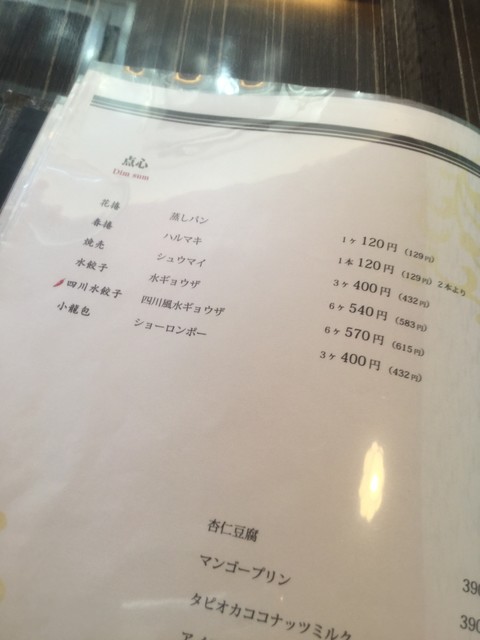 点心
Dim sum
花捲 蒸しパン 1ヶ 120円 (129円)
春捲 ハルマキ 1本 120円 (129円) 2本より
焼売 シュウマイ 3ヶ 400円 (432円)
水餃子 水ギョウザ 6ヶ 540円 (583円)
四川水餃子 四川風水ギョウザ 6ヶ 570円 (615円)
小龍包 ショーロンポー 3ヶ 400円 (432円)
杏仁豆腐
マンゴープリン 390
タピオカココナッツミルク 390